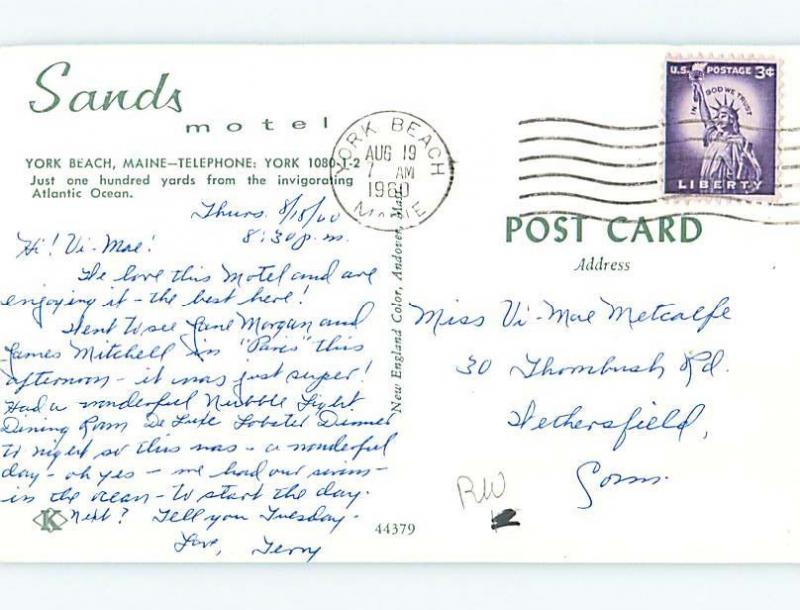 Sands
motel
YORK BEACH, MAINE—TELEPHONE: YORK 1080-J-2
Just one hundred yards from the invigorating
Atlantic Ocean.
YORK BEACH
AUG 19
7 AM
1960
MAINE
U.S. POSTAGE 3¢
IN GOD WE TRUST
LIBERTY
POST CARD
Address
Thurs. 8/18/60
8:30 p.m.
Hi! Vi-Mae!
We love this Motel and are
enjoying it - the best here!
Went to see Jane Morgan and
James Mitchell in "Paris" this
afternoon - it was just super!
Had a wonderful Nubble Light
Dining Room De Luxe Lobster Dinner
to night so this was - a wonderful
day - oh yes - we had our swim -
in the ocean - to start the day.
Next? Tell you Tuesday.
Love, Terry
New England Color, Andover, Mass.
Miss Vi-Mae Metcalfe
30 Thornbush Rd.
Wethersfield,
Conn.
RW
K
44379